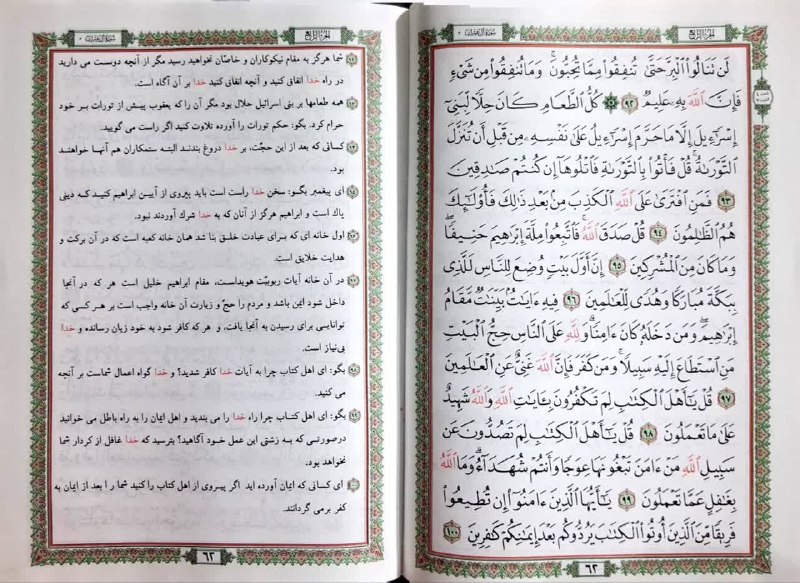 الجزء الرابع
سورة آل عمران
لَن تَنَالُوا۟ ٱلْبِرَّ حَتَّىٰ تُنفِقُوا۟ مِمَّا تُحِبُّونَ ۚ وَمَا تُنفِقُوا۟ مِن شَىْءٍ
فَإِنَّ ٱللَّهَ بِهِۦ عَلِيمٌ ﴿٩٢﴾ ۞ كُلُّ ٱلطَّعَامِ كَانَ حِلًّا لِّبَنِىٓ
إِسْرَٰٓءِيلَ إِلَّا مَا حَرَّمَ إِسْرَٰٓءِيلُ عَلَىٰ نَفْسِهِۦ مِن قَبْلِ أَن تُنَزَّلَ
ٱلتَّوْرَىٰةُ ۗ قُلْ فَأْتُوا۟ بِٱلتَّوْرَىٰةِ فَٱتْلُوهَآ إِن كُنتُمْ صَٰدِقِينَ
﴿٩٣﴾ فَمَنِ ٱفْتَرَىٰ عَلَى ٱللَّهِ ٱلْكَذِبَ مِنۢ بَعْدِ ذَٰلِكَ فَأُو۟لَٰٓئِكَ
هُمُ ٱلظَّٰلِمُونَ ﴿٩٤﴾ قُلْ صَدَقَ ٱللَّهُ ۗ فَٱتَّبِعُوا۟ مِلَّةَ إِبْرَٰهِيمَ حَنِيفًا ۖ
وَمَا كَانَ مِنَ ٱلْمُشْرِكِينَ ﴿٩٥﴾ إِنَّ أَوَّلَ بَيْتٍ وُضِعَ لِلنَّاسِ لَلَّذِى
بِبَكَّةَ مُبَارَكًا وَهُدًى لِّلْعَٰلَمِينَ ﴿٩٦﴾ فِيهِ ءَايَٰتٌۢ بَيِّنَٰتٌ مَّقَامُ
إِبْرَٰهِيمَ ۖ وَمَن دَخَلَهُۥ كَانَ ءَامِنًا ۗ وَلِلَّهِ عَلَى ٱلنَّاسِ حِجُّ ٱلْبَيْتِ
مَنِ ٱسْتَطَاعَ إِلَيْهِ سَبِيلًا ۚ وَمَن كَفَرَ فَإِنَّ ٱللَّهَ غَنِىٌّ عَنِ ٱلْعَٰلَمِينَ
﴿٩٧﴾ قُلْ يَٰٓأَهْلَ ٱلْكِتَٰبِ لِمَ تَكْفُرُونَ بِـَٔايَٰتِ ٱللَّهِ وَٱللَّهُ شَهِيدٌ
عَلَىٰ مَا تَعْمَلُونَ ﴿٩٨﴾ قُلْ يَٰٓأَهْلَ ٱلْكِتَٰبِ لِمَ تَصُدُّونَ عَن
سَبِيلِ ٱللَّهِ مَنْ ءَامَنَ تَبْغُونَهَا عِوَجًا وَأَنتُمْ شُهَدَآءُ ۗ وَمَا ٱللَّهُ
بِغَٰفِلٍ عَمَّا تَعْمَلُونَ ﴿٩٩﴾ يَٰٓأَيُّهَا ٱلَّذِينَ ءَامَنُوٓا۟ إِن تُطِيعُوا۟
فَرِيقًا مِّنَ ٱلَّذِينَ أُوتُوا۟ ٱلْكِتَٰبَ يَرُدُّوكُم بَعْدَ إِيمَٰنِكُمْ كَٰفِرِينَ ﴿١٠٠﴾
٦٢
الجزء الرابع
سورة آل عمران
شما هرگز به مقام نیکوکاران و خاصّان نخواهید رسید مگر از آنچه دوست می دارید
در راه خدا انفاق کنید و آنچه انفاق کنید خدا بر آن آگاه است.
همه طعامها بر بنی اسرائیل حلال بود مگر آن را که یعقوب پیش از تورات بر خود
حرام کرد. بگو: حکم تورات را آورده تلاوت کنید اگر راست می گویید.
کسانی که بعد از این حجّت، بر خدا دروغ بندند البته ستمکاران هم آنها خواهند
بود.
ای پیغمبر بگو: سخن خدا راست است باید پیروی از آیین ابراهیم کنید کـه دینی
پاك است و ابراهیم هرگز از آنان که به خدا شرك آوردند نبود.
اول خانه ای که برای عبادت خلق بنا شد همان خانه کعبه است که در آن برکت و
هدایت خلایق است.
در آن خانه آیات ربوبیّت هویداست، مقام ابراهیم خلیل است هر که در آنجا
داخل شود ایمن باشد و مردم را حجّ و زیارت آن خانه واجب است بر هـر کسی که
توانایی برای رسیدن به آنجا یافت، و هر که کافر شود به خود زیان رسانده و خدا
بی‌نیاز است.
بگو: ای اهل کتاب چرا به آیات خدا کافر شدید؟ و خدا گواه اعمال شماست بر آنچه
می کنید.
بگو: ای اهل کتاب چرا راه خدا را می بندید و اهل ایمان را به راه باطل می خوانید
درصورتـی که بـه زشتی این عمل خـود آگاهید؟ بترسید که خدا غافل از کردار شما
نخواهد بود.
ای کسانی که ایمان آورده اید اگر پیروی از اهل کتاب را کنید شما را بعد از ایمان به
کفر برمی گردانند.
٦٢